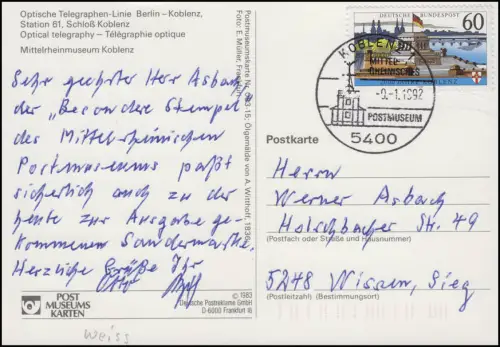 Optische Telegraphen-Linie Berlin – Koblenz,
Station 61, Schloß Koblenz
Optical telegraphy – Télégraphie optique
Mittelrheinmuseum Koblenz
Sehr geehrter Herr Asbach
der „Besondere Stempel"
des Mittelrheinischen
Postmuseums paßt
sicherlich auch zu der
heute zur Ausgabe ge-
kommenen Sondermarke.
Herzliche Grüße Ihr
POST
MUSEUMS
KARTEN
© 1983
Deutsche Postreklame GmbH
D-6000 Frankfurt 16
weiss
Foto: E. Müller,
Ölgemälde von A. Witthoft, 1836
DEUTSCHE BUNDESPOST
60
KOBLENZ
MITTEL-
RHEINISCHES
-9.-1.1992
POSTMUSEUM
5400
Postkarte
Herrn
Werner Asbach
Holschbacher Str. 49
(Postfach oder Straße und Hausnummer)
5248 Wissen, Sieg
(Postleitzahl) (Bestimmungsort)